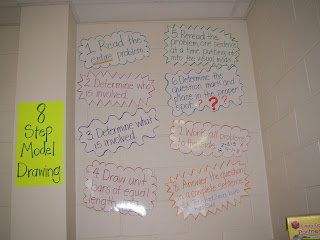 8
Step
Model
Drawing
1. Read the
entire problem.
2. Determine who
is involved.
3. Determine what
is involved.
4. Draw unit
bars of equal
length.
5. Reread the
problem, one sentence
at a time, putting info
into the visual model.
6. Determine the
question mark and
place in the proper
spot. ???
7. Work all problems
to the side.
8. Answer the question
in a complete sentence